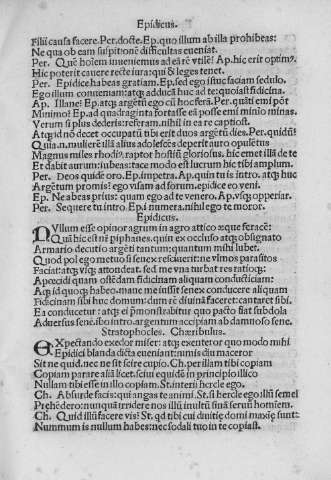 Epidicus.
Filii causa facere. Per. docte. Ep. quo illum ab illa prohibeas:
Ne qua ob eam suspitionē difficultas eueniat.
Per. Quē hoīem inueniemus ad eā rē vtilē? Ap. hic erit optimꝰ.
Hic poterit cauere recte iura: qui & leges tenet.
Per. Epidice habeas gratiam. Ep. sed ego istuc faciam sedulo.
Ego illum conueniam: atq̃ adducā huc ad te: quoiast fidicina.
Ap. Illane? Ep. atq̃ argētū ego cū hoc ferā. Per. quāti emi pōt
Minimo? Ep. ad quadraginta fortasse eā posse emi mīnio minas.
Verum si plus dederis: referam. nihil in ea re captiost.
Atq̃ id nō decet occupatū tibi erit duos argētū dies. Per. quidū?
Quia .n. mulierē illā alius adolescēs deperit auro opulētus
Magnus miles rhodiꝰ. raptor hostiū gloriosus. hic emet illā de te
Et dabit aurum: iubeas: tace modo est lucrum hic tibi amplum.
Per. Deos quide oro. Ep. impetra. Ap. quin tu is intro. atq̃ huc
Argētum promis? ego visam ad forum. epidice eo veni.
Ep. Ne abeas prius: quam ego ad te venero. Ap. vsq̃ opperiar.
Per. Sequere tu intro. Epi numera. nihil ego te moror.
Epidicus.
NVllum esse opinor agrum in agro attico æque feracē:
Quā hic est nr̄ piphanes. quin ex occluso atq̃ obsignato
Armario decutio argēti tantum: quantum mihi lubet.
Quod pol ego metuo si senex resciuerit: ne vlmos parasitos
Faciat: atq̃ vsq̃ attondeat. sed me vna turbat res ratioq̃:
Apœcidi quam ostēdam fidicinam aliquam conducticiam:
Atq̃ id quoq̃ habeo. mane me iussit senex conducere aliquam
Fidicinam sibi huc domum: dum rē diuinā faceret: cantaret sibi.
Ea conducetur: atq̃ ei p̄monstrabitur quo pacto fiat subdola
Aduersus senē. ibo intro. argentum accipiam ab damnoso sene.
Stratophocles. Chæribulus.
EXpectando exedor miser: atq̃ exenteror quo modo mihi
Epidici blanda dicta eueniant: nimis diu maceror
Sit ne quid. nec ne sit scire cupio. Ch. per illam tibi copiam
Copiam parare aliā licet. sciui equidē in principio illico
Nullam tibi esse in illo copiam. St. interii hercle ego.
Ch. Absurde facis: qui angas te animi. St. si hercle ego illū semel
Prehēdero: nunquā irridere nos illū inultū sinā seruū hominem.
Ch. Quid illū facere vis? St. qd tibi cui diuitię domi maxię sunt:
Nummum is nullum habes: nec sodali tuo in te copiast.